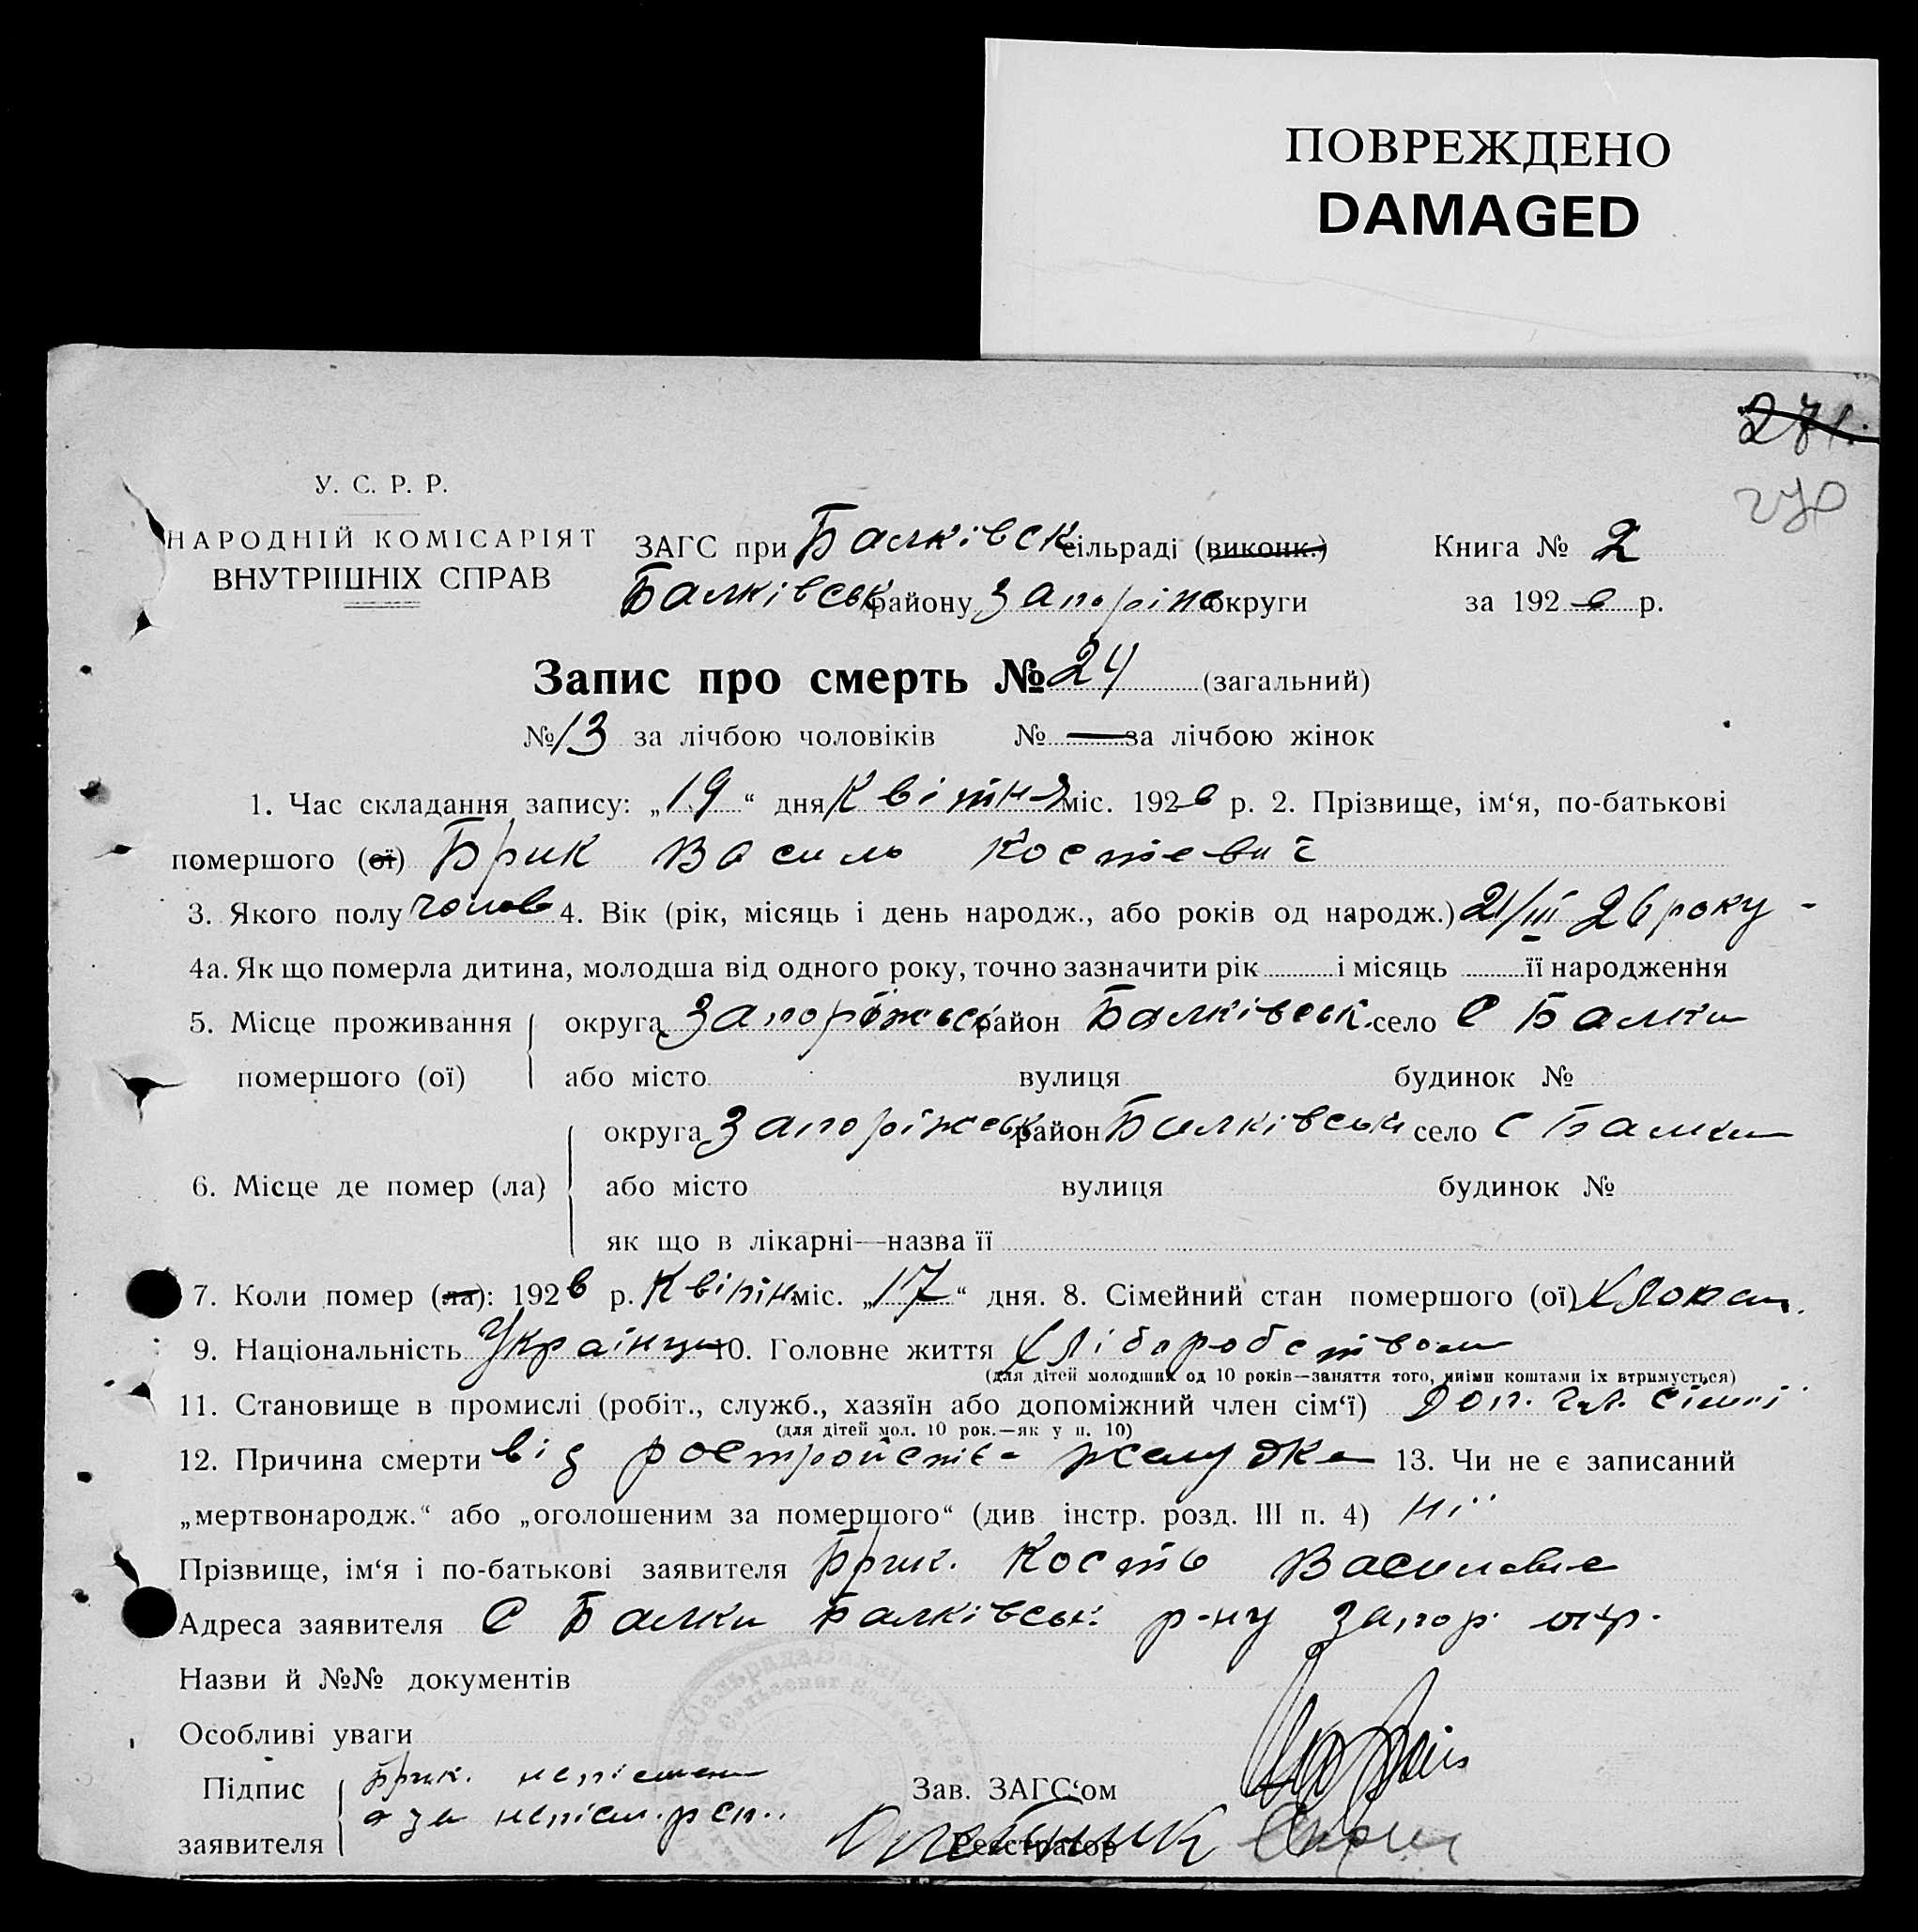 ПОВРЕЖДЕНО
DAMAGED
271.
270
У. С. Р. Р.
НАРОДНІЙ КОМІСАРІЯТ
ВНУТРІШНІХ СПРАВ
ЗАГС при Балківськ сільраді (виконк.) Книга № 2
Балківськ району Запоріж округи за 1926 р.
Запис про смерть № 24 (загальний)
№ 13 за лічбою чоловіків № — за лічбою жінок
1. Час складання запису: „19“ дня Квітня міс. 1926 р. 2. Прізвище, ім‘я, по-батькові
помершого (ої) Брик Василь Костевич
3. Якого полу чолов 4. Вік (рік, місяць і день народж., або років од народж.) 21/III 26 року
4а. Як що померла дитина, молодша від одного року, точно зазначити рік і місяць її народження
5. Місце проживання округа Запоріжськ район Балківськ. село С Балки
помершого (ої) або місто вулиця будинок №
округа Запоріжськ район Балківськ село С Балки
6. Місце де помер (ла) або місто вулиця будинок №
як що в лікарні—назва її
7. Коли помер (ла): 1926 р. Квітня міс. „17“ дня. 8. Сімейний стан помершого (ої) Хлопец.
9. Національність Українец 10. Головне життя Хліборобством
(для дітей молодших од 10 років—заняття того, чиіми коштами їх втримується)
11. Становище в промислі (робіт., служб., хазяїн або допоміжний член сім‘ї) Доп. чл. сімї
(для дітей мол. 10 рок.—як у п. 10)
12. Причина смерти від ростройства желудка 13. Чи не є записаний
„мертвонародж.“ або „оголошеним за помершого“ (див інстр. розд. III п. 4) Ні
Прізвище, ім‘я і по-батькові заявителя Брик. Кость Василевич
Адреса заявителя С Балки Балківськ р-ну Запор окр.
Назви й №№ документів
Особливі уваги
Підпис Брик. непісмен
Зав. ЗАГС‘ом
заявителя а за непісм. росп.
Реєстратор